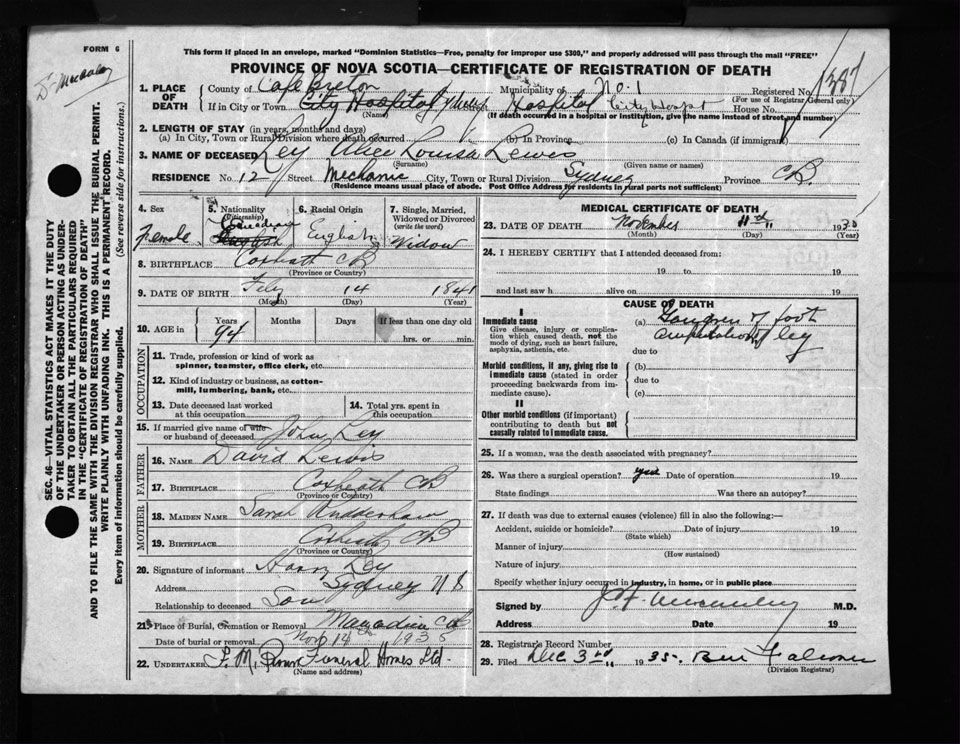 FORM 6
This form if placed in an envelope, marked "Dominion Statistics—Free, penalty for improper use $300," and properly addressed will pass through the mail "FREE"
PROVINCE OF NOVA SCOTIA—CERTIFICATE OF REGISTRATION OF DEATH
SEC. 46—VITAL STATISTICS ACT MAKES IT THE DUTY
OF THE UNDERTAKER OR PERSON ACTING AS UNDER-
TAKER TO OBTAIN ALL THE PARTICULARS REQUIRED
IN THE "CERTIFICATE OF REGISTRATION OF DEATH"
AND TO FILE THE SAME WITH THE DIVISION REGISTRAR WHO SHALL ISSUE THE BURIAL PERMIT.
WRITE PLAINLY WITH UNFADING INK. THIS IS A PERMANENT RECORD.
Every item of information should be carefully supplied. (See reverse side for instructions.)
1. PLACE OF DEATH
County of Cape Breton Municipality of No. 1 Registered No. 1387
(For use of Registrar General only)
If in City or Town City Hospital Hospital City Hospt House No.
(Name) (If death occurred in a hospital or institution, give the name instead of street and number)
2. LENGTH OF STAY (in years, months and days)
(a) In City, Town or Rural Division where death occurred (b) In Province (c) In Canada (if immigrant)
3. NAME OF DECEASED Ley Alice Louisa Lewis
(Surname) (Given name or names)
RESIDENCE No. 12 Street Mechanic City, Town or Rural Division Sydney Province CB.
(Residence means usual place of abode. Post Office Address for residents in rural parts not sufficient)
4. Sex Female
5. Nationality (Citizenship) Canadian
6. Racial Origin English
7. Single, Married, Widowed or Divorced (write the word) Widow
8. BIRTHPLACE Coxheath CB
(Province or Country)
9. DATE OF BIRTH Feby 14 1841
(Month) (Day) (Year)
10. AGE in Years 94 Months Days If less than one day old
hrs. or min.
OCCUPATION
11. Trade, profession or kind of work as
spinner, teamster, office clerk, etc.
12. Kind of industry or business, as cotton-
mill, lumbering, bank, etc.
13. Date deceased last worked at this occupation
14. Total yrs. spent in this occupation
15. If married give name of wife or husband of deceased John Ley
FATHER
16. NAME David Lewis
17. BIRTHPLACE Coxheath CB
(Province or Country)
MOTHER
18. MAIDEN NAME Sarah
19. BIRTHPLACE Coxheath CB
(Province or Country)
20. Signature of informant Harry Ley
Address Sydney N S
Relationship to deceased Son
21. Place of Burial, Cremation or Removal CB
Date of burial or removal Nov 14th 1935
22. UNDERTAKER F. M. Funeral Homes Ltd.
(Name and address)
MEDICAL CERTIFICATE OF DEATH
23. DATE OF DEATH November 11th 1935
(Month) (Day) (Year)
24. I HEREBY CERTIFY that I attended deceased from:
19 to 19
and last saw h alive on 19
CAUSE OF DEATH
I
Immediate cause (a) Gangrene of foot
Give disease, injury or complica- amputation of leg
tion which caused death, not the
mode of dying, such as heart failure,
asphyxia, asthenia, etc. due to
Morbid conditions, if any, giving rise to (b)
immediate cause (stated in order due to
proceeding backwards from im-
mediate cause). (c)
II
Other morbid conditions (if important)
contributing to death but not
causally related to immediate cause.
25. If a woman, was the death associated with pregnancy?
26. Was there a surgical operation? yes Date of operation 19
State findings Was there an autopsy?
27. If death was due to external causes (violence) fill in also the following:—
Accident, suicide or homicide? Date of injury 19
(State which)
Manner of injury
(How sustained)
Nature of injury
Specify whether injury occurred in industry, in home, or in public place
Signed by M.D.
Address Date 19
28. Registrar's Record Number
29. Filed Dec 3rd 1935. Falconer
(Division Registrar)